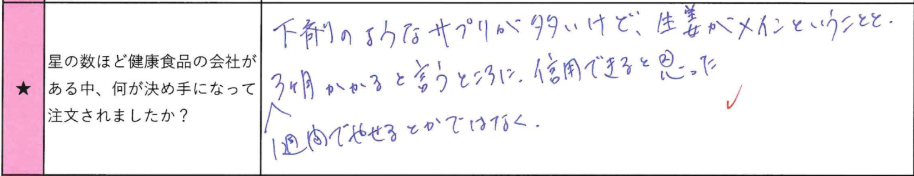 ★
星の数ほど健康食品の会社が
ある中、何が決め手になって
注文されましたか？
下剤のようなサプリが多いけど、生姜がメインということと、
3ヶ月かかると言うところに、信用できると思った
1週間でやせるとかではなく、